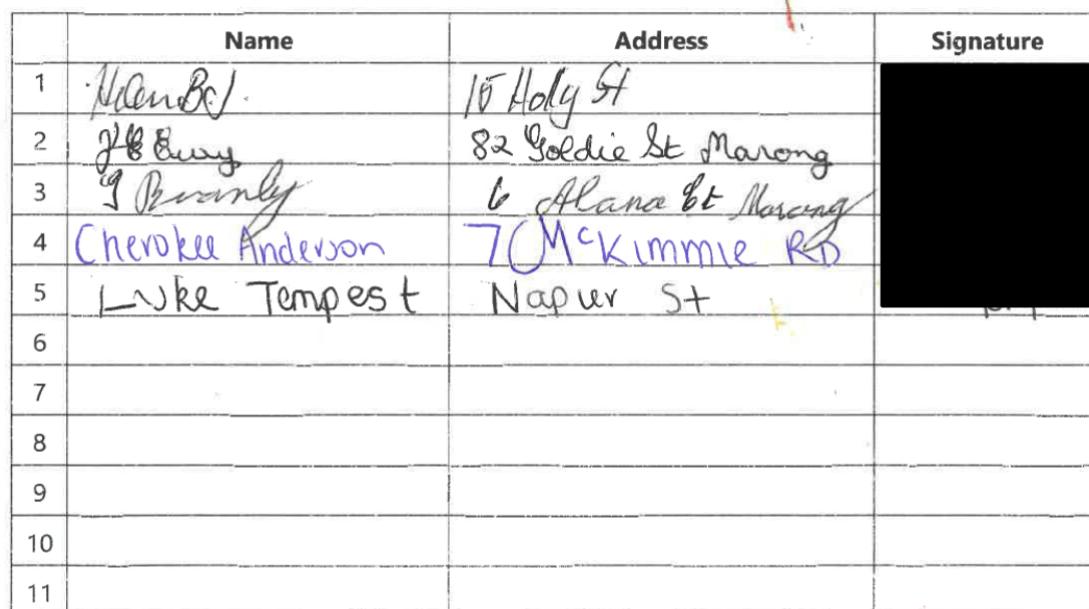 Name Address Signature
1 Helen 15 Holy St
2 82 Goldie St Marong
3 6 Alana St Marong
4 Cherokee Anderson 7 McKimmie RD
5 Luke Tempest Napier St
6
7
8
9
10
11